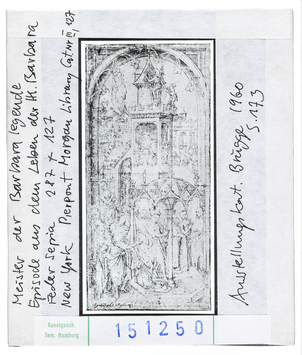 Meister der Barbaralegende
Episode aus dem Leben der Hl. Barbara
Feder Sepia 287 x 127
New York Pierpont Morgan Library Cat. III, 127
Ausstellungskat. Brügge 1960
S. 173
Kunstgesch.
Sem. Hamburg
151250